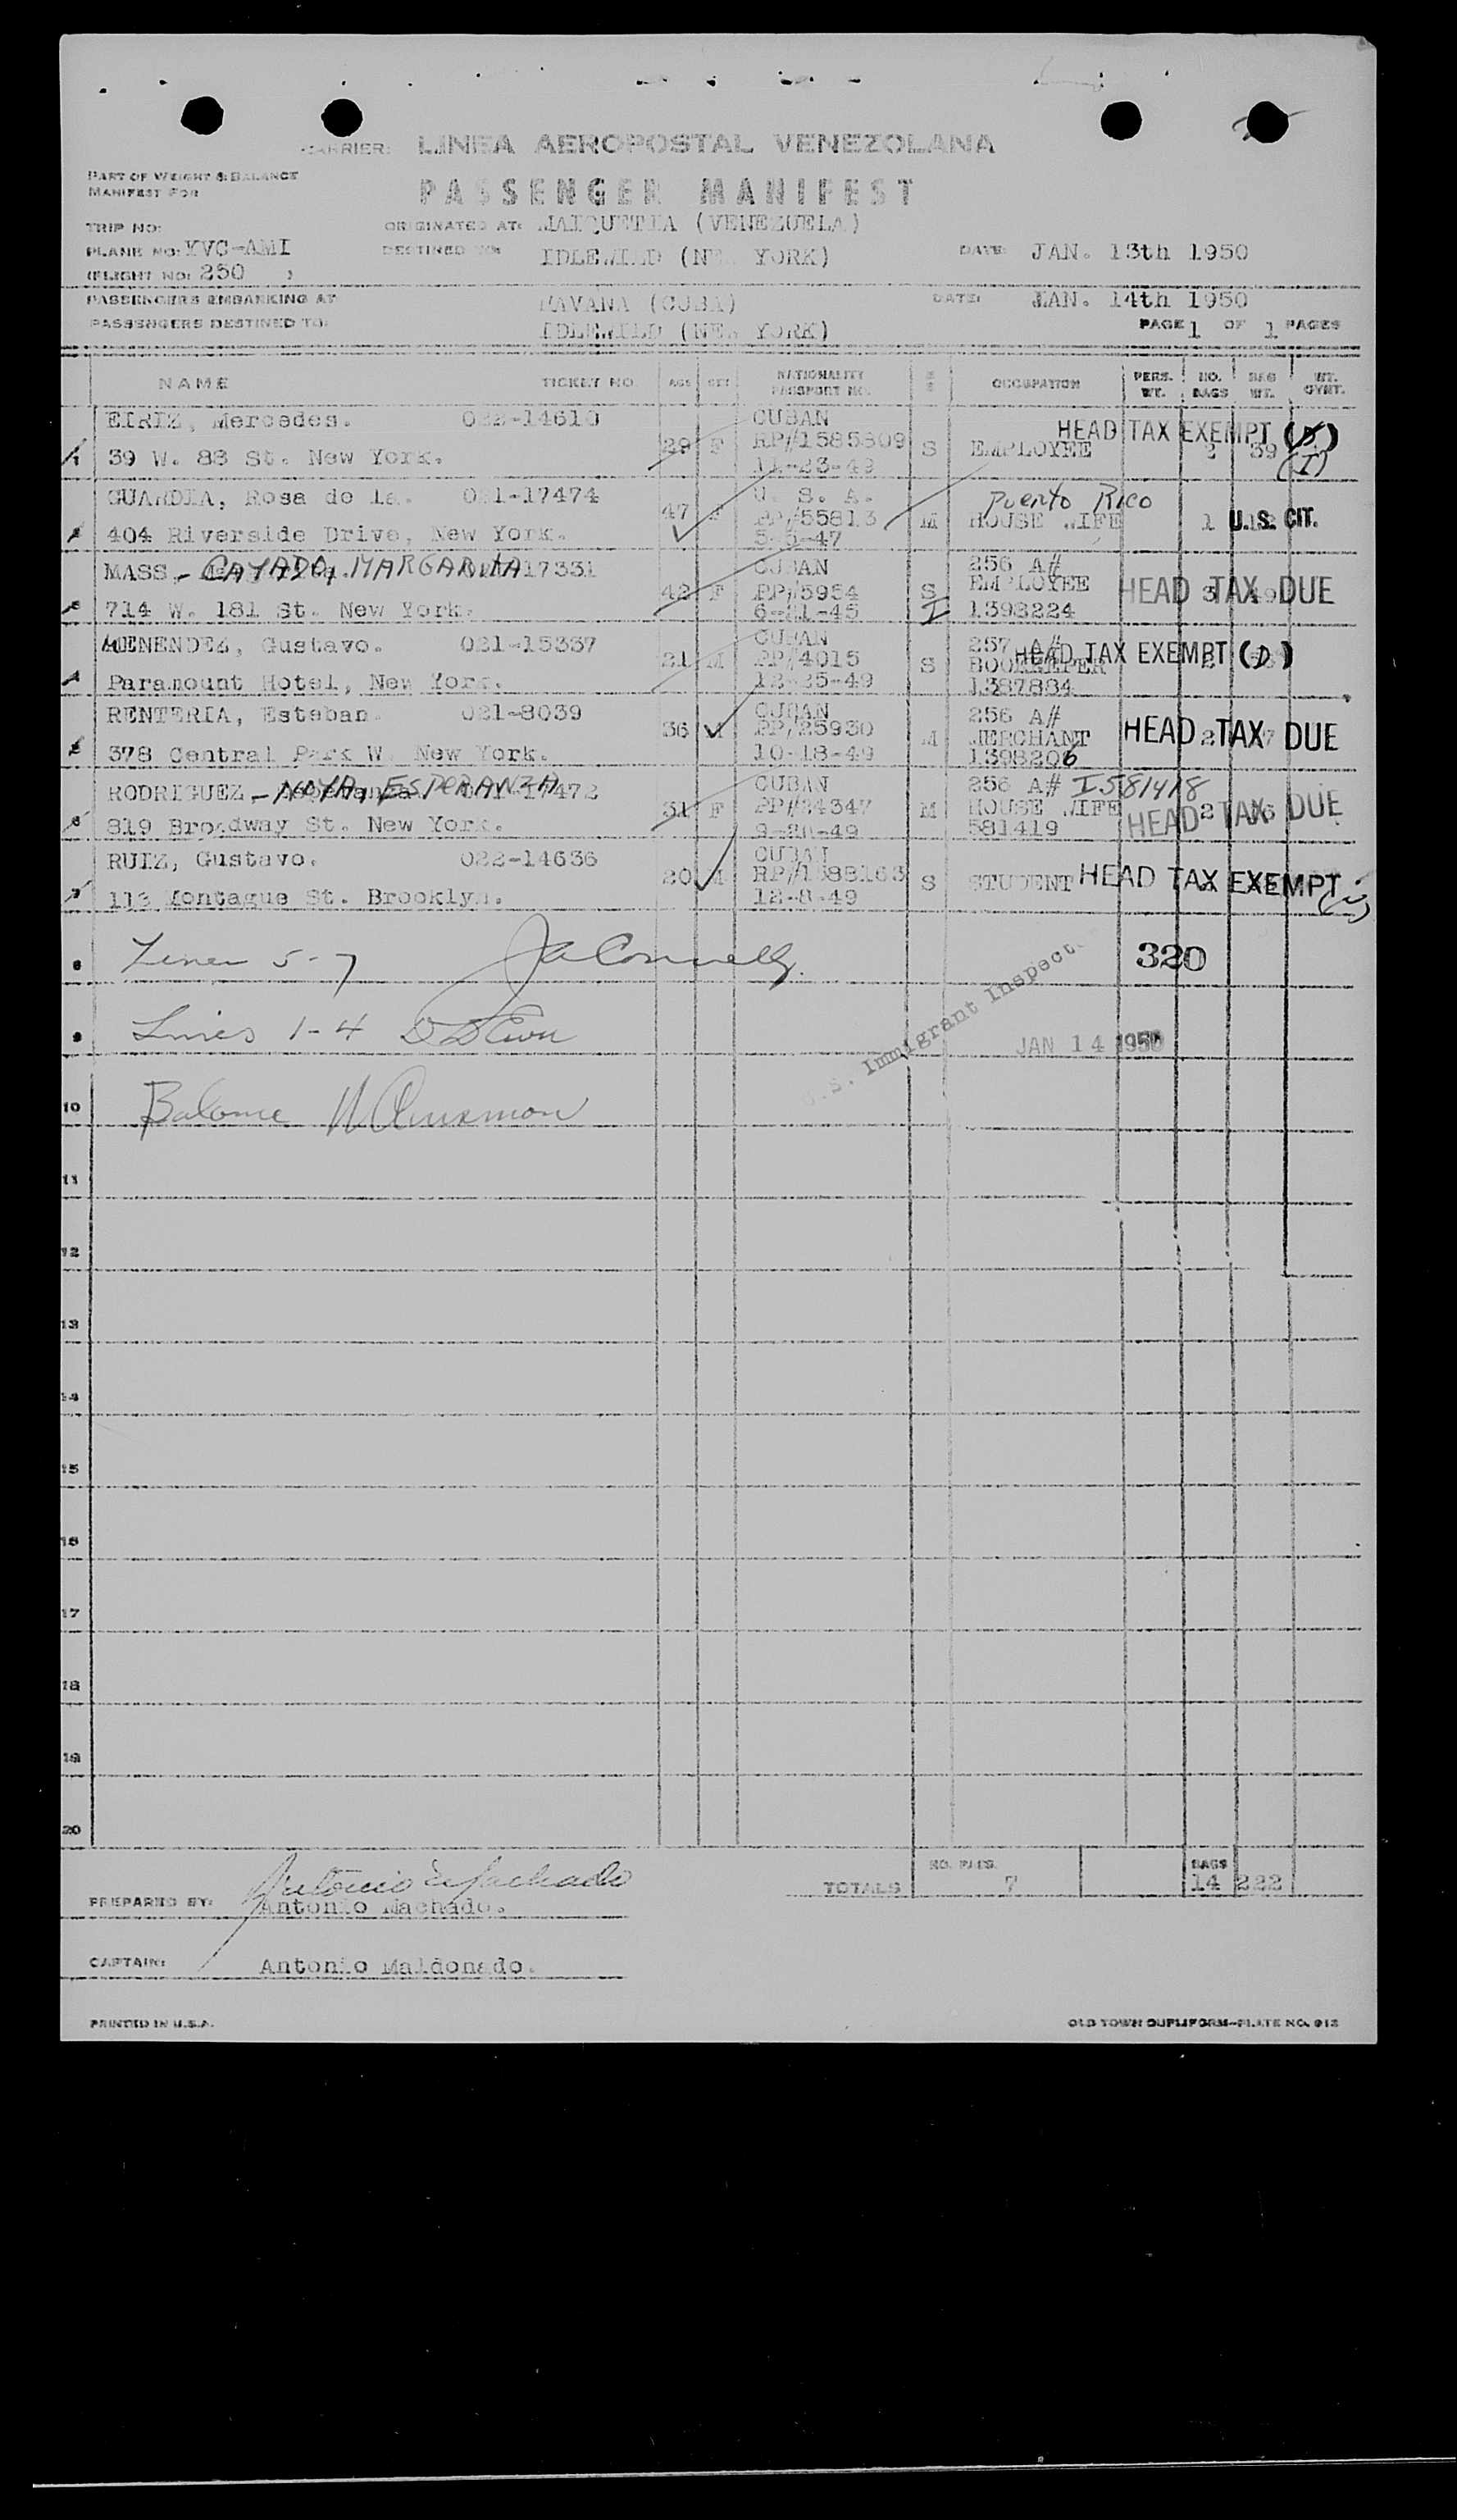 CARRIER: LINEA AEROPOSTAL VENEZOLANA
PART OF WEIGHT & BALANCE
MANIFEST FOR
PASSENGER MANIFEST
TRIP NO:
ORIGINATED AT: MAIQUETIA (VENEZUELA)
PLANE NO: YVC-AMI
DESTINED TO: IDLEWILD (NEW YORK) DATE: JAN. 13th 1950
(FLIGHT NO: 250 )
PASSENGERS EMBARKING AT: HAVANA (CUBA) DATE: JAN. 14th 1950
PASSENGERS DESTINED TO: IDLEWILD (NEW YORK) PAGE 1 OF 1 PAGES
NAME TICKET NO AGE SEX NATIONALITY PASSPORT NO. OCCUPATION PERS. WT. NO. BAGS BAG WT. WT. CYNT.
EIRIZ, Mercedes. 022-14610 CUBAN
29 F RP#1585309 S EMPLOYEE 2 39 HEAD TAX EXEMPT (I)
1 39 W. 88 St. New York. 11-23-49
GUARDIA, Rosa de la. 021-17474 U. S. A. Puerto Rico
47 F PP#55813 M HOUSE WIFE 1 U.S. CIT.
2 404 Riverside Drive, New York. 5-5-47
MASS - CAYADA, MARGARITA 17331 CUBAN 256 A#
42 F PP#5954 S EMPLOYEE 3 HEAD TAX DUE
3 714 W. 181 St. New York. 6-21-45 I 1398224
MENENDEZ, Gustavo. 021-15337 CUBAN 257 A#
21 M PP#4015 S BOOKKEEPER HEAD TAX EXEMPT (D)
4 Paramount Hotel, New York. 12-25-49 1387884
RENTERIA, Esteban. 021-8039 CUBAN 256 A#
36 M PP#25930 M MERCHANT 2 HEAD TAX DUE
5 378 Central Park W. New York. 10-18-49 1398206
RODRIGUEZ - NOYA, ESPERANZA 17472 CUBAN 256 A# I581418
31 F PP#24347 M HOUSE WIFE 2 HEAD TAX DUE
6 819 Broadway St. New York. 9-20-49 581419
RUIZ, Gustavo. 022-14636 CUBAN
20 M RP#1588163 S STUDENT HEAD TAX EXEMPT
7 113 Montague St. Brooklyn. 12-8-49
8 Lines 5-7 JA Connelly. 320
U.S. Immigrant Inspector
9 Lines 1-4 JAN 14 1950
10 Balance
11
12
13
14
15
16
17
18
19
20
NO. PASS. BAGS
TOTALS 7 14 222
Antonio Machado
PREPARED BY: Antonio Machado.
CAPTAIN: Antonio Maldonado.
PRINTED IN U.S.A. OLD TOWN DUPLIFORM-PLATE NO. 912